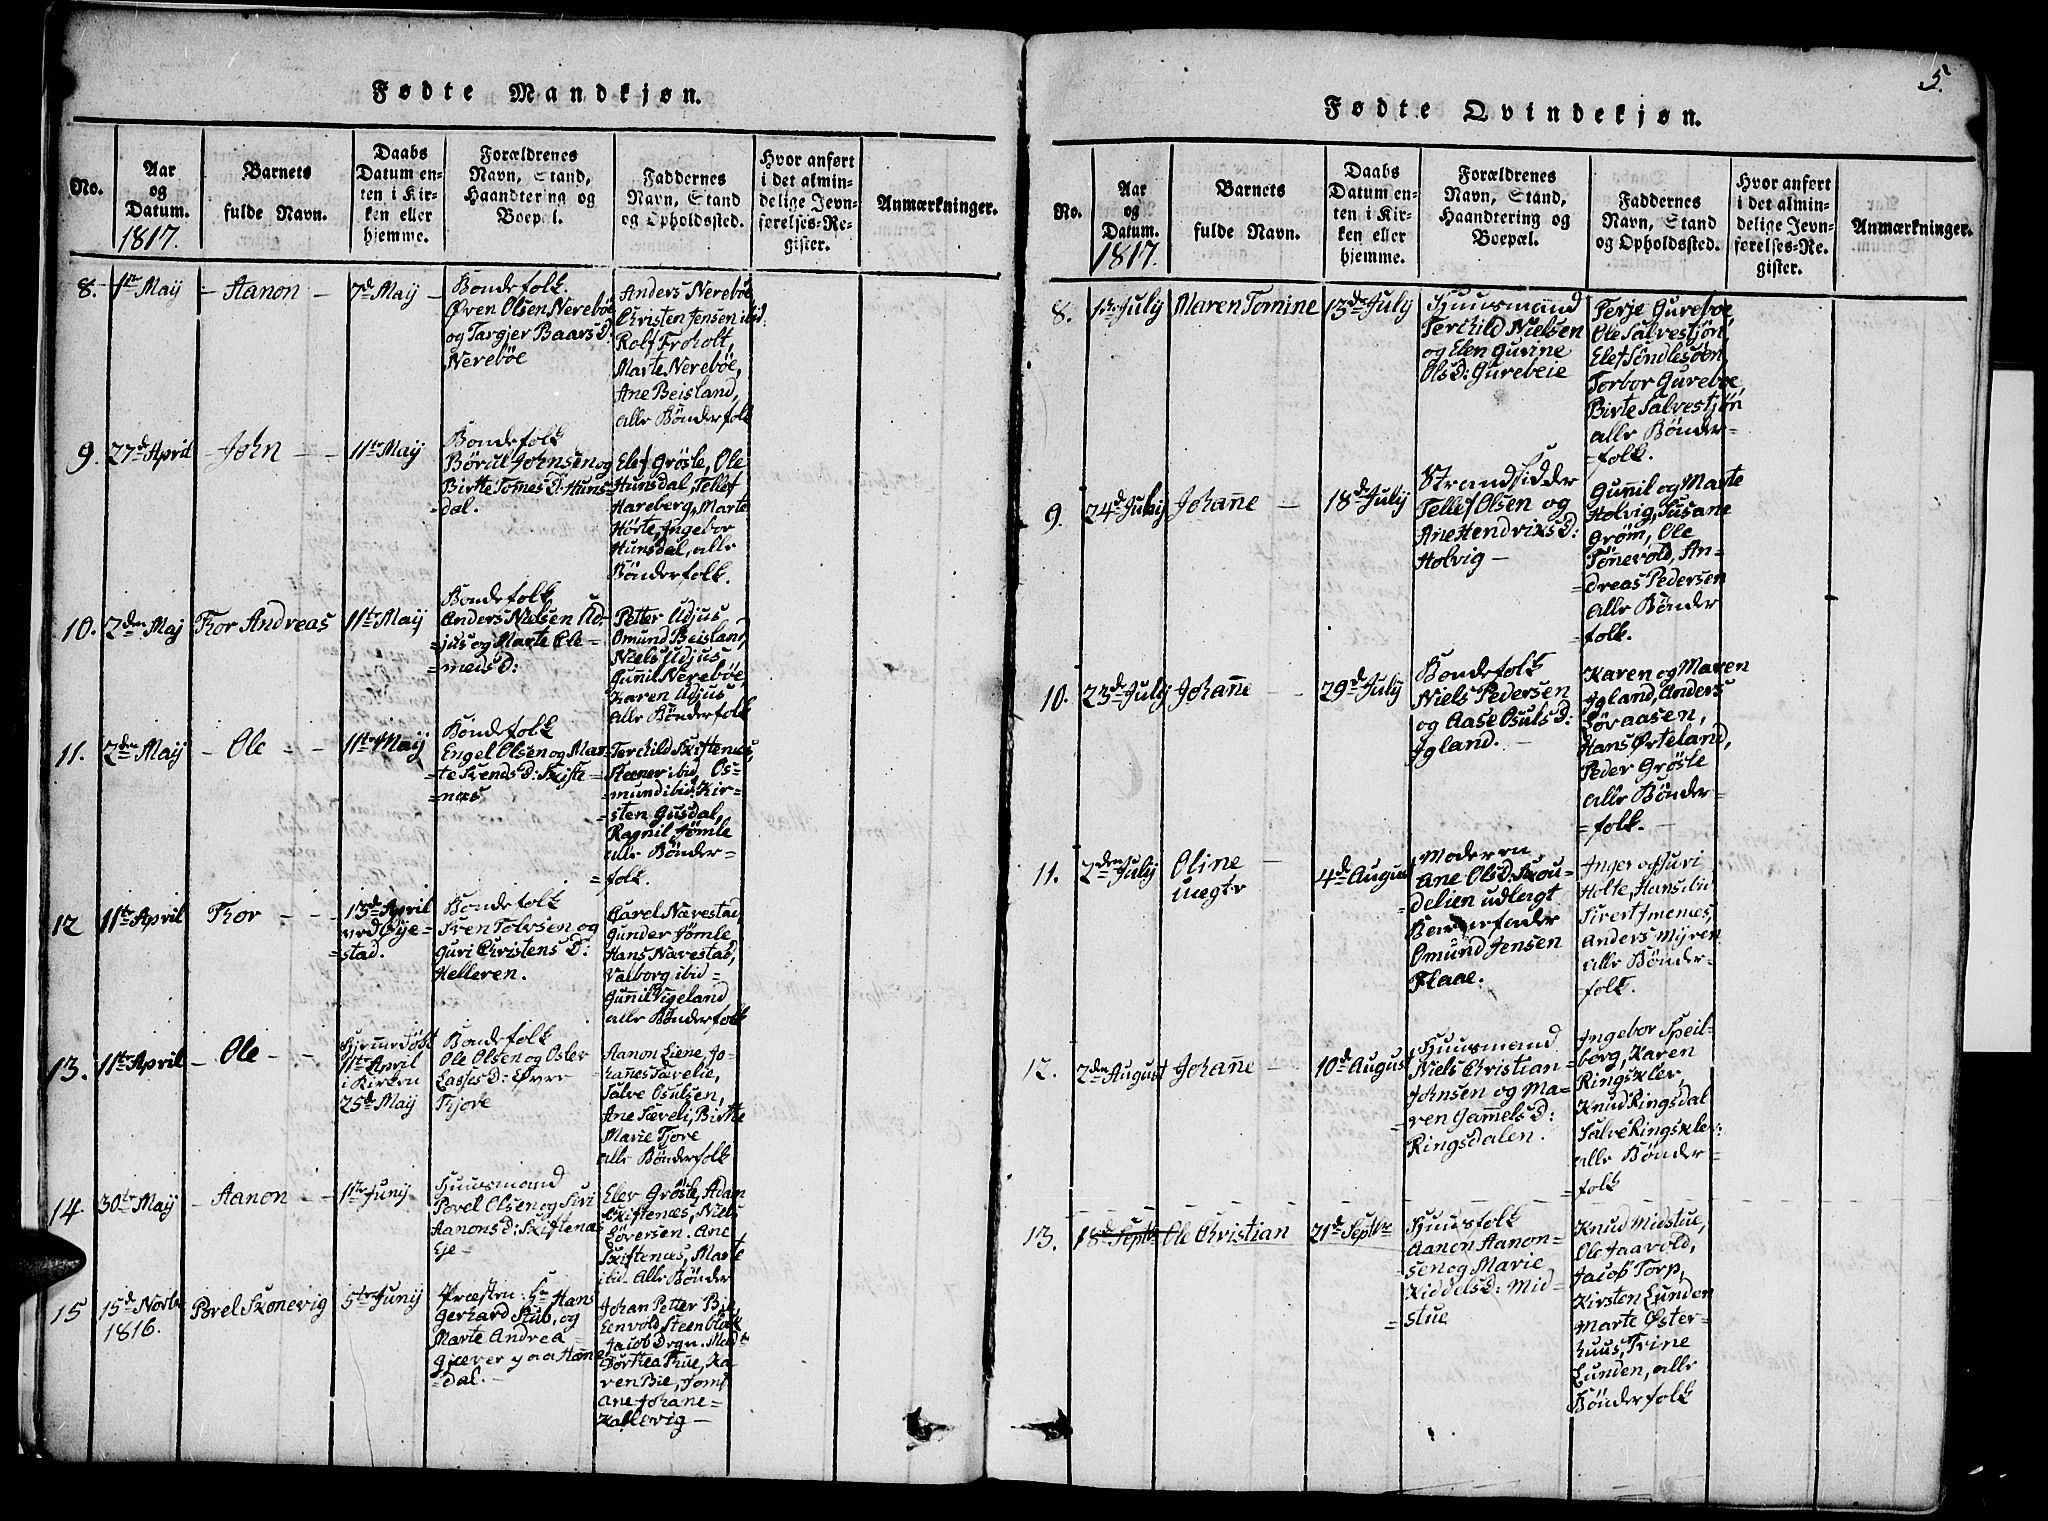 Fødte Mandkjøn.
No.
Aar
og
Datum.
1817.
Barnets
fulde Navn.
Daabs
Datum en-
ten i Kir-
ken eller
hjemme.
Forældrenes
Navn, Stand,
Haandtering og
Boepæl.
Faddernes
Navn, Stand
og Opholdssted.
Hvor anført
i det almin-
delige Jevn-
førelses-Re-
gister.
Anmærkninger.
8.
1ste Maij
Aanon
7de Maij
Bondefolk.
Øven Olsen Nerebøe
og Targjer Baars D:
Nerebøe
Anders Nerebøe
Christen Jensen ibid:
Rolf Froholt,
Marte Nerebøe,
Ane Beisland,
alle Bønderfolk
9.
27de April
John
11te Maij
Bondefolk
Børul Johnsen og
Birtte Tomes D: Huns-
dal.
Elef Grösle, Ole
Hunsdal, Tellef
Hareberg, Marte
Hörte, Ingebor
Hunsdal, alle
Bönderfolk.
10.
2den Maj
Thor Andreas
11te Maij
Bondefolk
Anders Nielsen Ud-
=jus og Marte Cle-
=meds D:
Petter Udjus
Omund Beisland,
Niels Udjus
Gunil Nerebøe,
Karen Udjus
alle Bönderfolk
11.
2den Maij
Ole
11te Maij
Bondefolk
Engel Olsen og Mar-
=te Svends D: Skifte-
=næs
Terchild Skiftenes,
Steener ibid, Os-
mund ibid, Kir-
=sten Gusdal,
Ragnil Jømle
alle Bönder-
=folk.
12
11te April
Thor
13de April
ved Øije-
=stad.
Bondefolk
Sven Tolvsen og
Guri Christens D:
Helleren.
Carel Næresta,
Gunder Jømle
Hans Nærestad,
Valborg ibid-
Gunil Vigeland
alle Bönderfolk
13.
11te April
Ole
Hjemmedøbt
11te April
i Kirken
25de Maij
Bondefolk
Ole Olsen og Osler
Lasses D: Øvre
Thjore
Aanon Liene, Jo-
hanes Særelie,
Salve Osulsen,
Ane Særeli, Birthe
Marie Tjore
alle Bönderfolk
14
30te Maij
Aanon
1ste Junij
Huusmand
Povel Olsen og Siri
Aanons D: Skiftenæs
Eje-
Elev Grösle, Adam
Skiftenæs, Niels
Sörersen. Ane
Skiftenæs, Marte
ibid- Alle Bønder
15
15de Novbr
1816.
Povel Skonevig
5te Junij
Præsten: Hr Hans
Gerhard Stub, og
Marte Andrea
Gjæver
=dal.-
Johan Petter Bie,
Eenvold Steenblok
Jacob
Dorthea Thue, Ka-
ren Bie, Jomf
Ane Johane
Kallevig-
5.
Fødte Qvindekjøn.
No.
Aar
og
Datum.
1817.
Barnets
fulde Navn.
Daabs
Datum en-
ten i Kir-
ken eller
hjemme.
Forældrenes
Navn, Stand,
Haandtering og
Boepæl.
Faddernes
Navn, Stand
og Opholdssted.
Hvor anført
i det almin-
delige Jevn-
førelses-Re-
gister.
Anmærkninger.
8.
13de July
Maren Tomine
13de July
Huusmand
Terchild Nielsen
og Elen Gurine
Ols D: Gurebeie
Terje Gureboe,
Ole Salvestjön,
Elef Sindlesöen,
Torbor Gureboe,
Birte Salvestjön
alle Bönder-
=folk.
9.
24de July
Johañe
18de July
Strandsidder
Tellef Olsen og
Ane Hendriks D:
Holvig-
Guñil og Marte
Holvig, Susane
Gröm, Ole
Tönevold, An-
=dreas Pedersen
alle Bönder
=folk.
10.
23de July
Johañe
29de July
Bondefolk
Niels Pedersen
og Aase Osuls D:
Igland.-
Karen og Maren
Igland, Anders
Söraasen,
Hans Örteland,
Peder Grösle
alle Bönder-
=folk.-
11.
2den July
Oline
uægte
4de August
Moderen
Ane Ols D: Skou-
delien udlagt
Barnefader
Omund Jensen
Flaae.
Inger og Guri
Holte, Hans ibid
Sivert Imenes,
Anders Myren
alle Bönder-
folk.
12.
2den August
Johañe
10de August
Huusmand
Niels Christian-
Johnsen og Ma-
ren Gammels D:
Ringsdalen.
Ingebor Speil-
borg, Karen
Ringskler,
Knud Ringsdal
Salve Ringskler.
alle Bönder-
=folk
13.
18de Septbr
Ole Christian
21de Septbr
Huusfolk
Aanon Aanon-
sen og Marie
Kiddels D: Mid-
=stue
Knud Midstue,
Ole Jaavold,
Jacob Torp,
Kirsten Lunden
Marte Öster-
huus, Trine
Lunden, alle
Bönderfolk